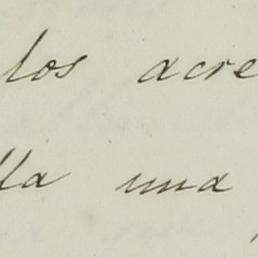 los acre
lla una